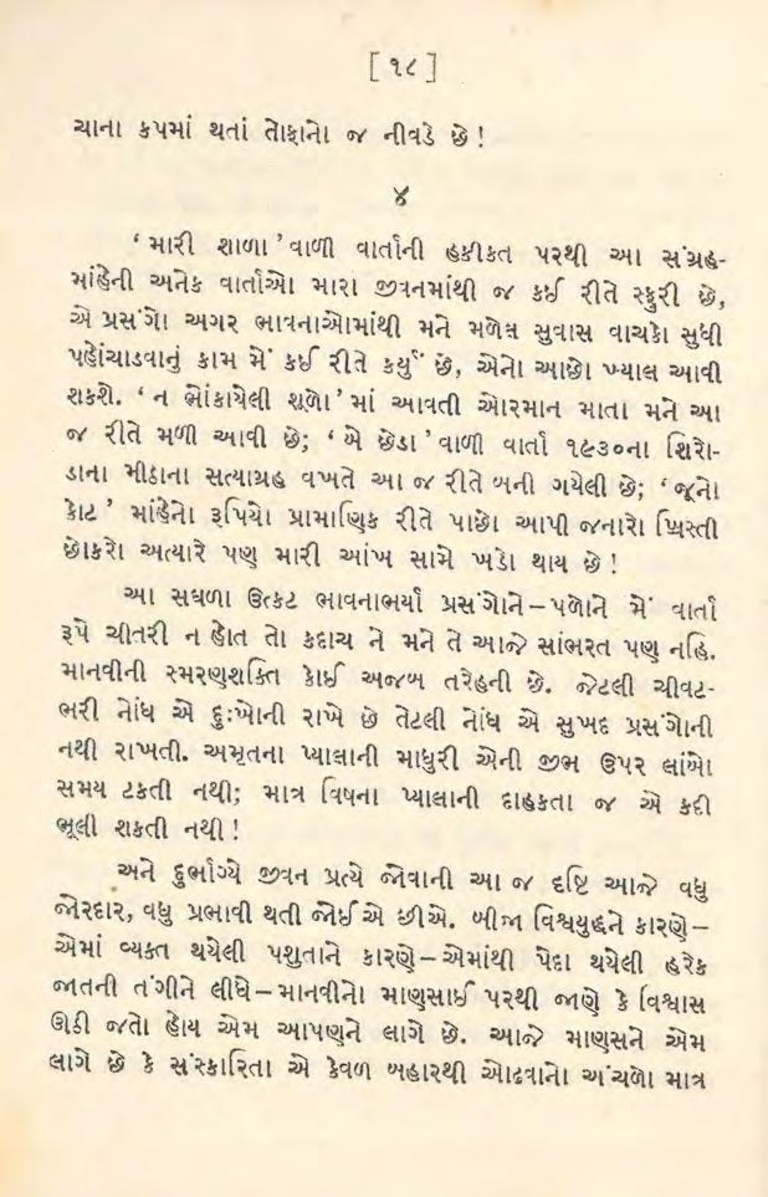 [ ૧૮ ]
ચાના કપમાં થતાં તોફાનો જ નીવડે છે !
૪
‘ મારી શાળા ’ વાળી વાર્તાની હકીકત પરથી આ સંગ્રહ-
માંહેની અનેક વાર્તાઓ મારા જીવનમાંથી જ કઈ રીતે સ્ફુરી છે,
એ પ્રસંગો અગર ભાવનાઓમાંથી મને મળેલ સુવાસ વાચકો સુધી
પહોંચાડવાનું કામ મેં કઈ રીતે કર્યું છે, એનો આછો ખ્યાલ આવી
શકશે. ‘ ન ભોંકાયેલી શૂળો ’ માં આવતી ઓરમાન માતા મને આ
જ રીતે મળી આવી છે; ‘ બે છેડા ’ વાળી વાર્તા ૧૯૩૦ના શિરો-
ડાના મીઠાના સત્યાગ્રહ વખતે આ જ રીતે બની ગયેલી છે; ‘ જૂનો
કોટ ’ માંહેનો રૂપિયો પ્રામાણિક રીતે પાછો આપી જનારો ખ્રિસ્તી
છોકરો અત્યારે પણ મારી આંખ સામે ખડો થાય છે !
આ સઘળા ઉત્કટ ભાવનાભર્યા પ્રસંગોને – પળોને મેં વાર્તા
રૂપે ચીતરી ન હોત તો કદાચ ને મને તે આજે સાંભરત પણ નહિ.
માનવીની સ્મરણશક્તિ કોઈ અજબ તરેહની છે. જેટલી ચીવટ-
ભરી નોંધ એ દુઃખોની રાખે છે તેટલી નોંધ એ સુખદ પ્રસંગોની
નથી રાખતી. અમૃતના પ્યાલાની માધુરી એની જીભ ઉપર લાંબો
સમય ટકતી નથી; માત્ર વિષના પ્યાલાની દાહકતા જ એ કદી
ભૂલી શકતી નથી !
અને દુર્ભાગ્યે જીવન પ્રત્યે જોવાની આ જ દૃષ્ટિ આજે વધુ
જોરદાર, વધુ પ્રભાવી થતી જોઈએ છીએ. બીજા વિશ્વયુદ્ધને કારણે –
એમાં વ્યક્ત થયેલી પશુતાને કારણે – એમાંથી પેદા થયેલી હરેક
જાતની તંગીને લીધે – માનવીનો માણસાઈ પરથી જાણે કે વિશ્વાસ
ઊડી જતો હોય એમ આપણને લાગે છે. આજે માણસને એમ
લાગે છે કે સંસ્કારિતા એ કેવળ બહારથી ઓઢવાનો અંચળો માત્ર